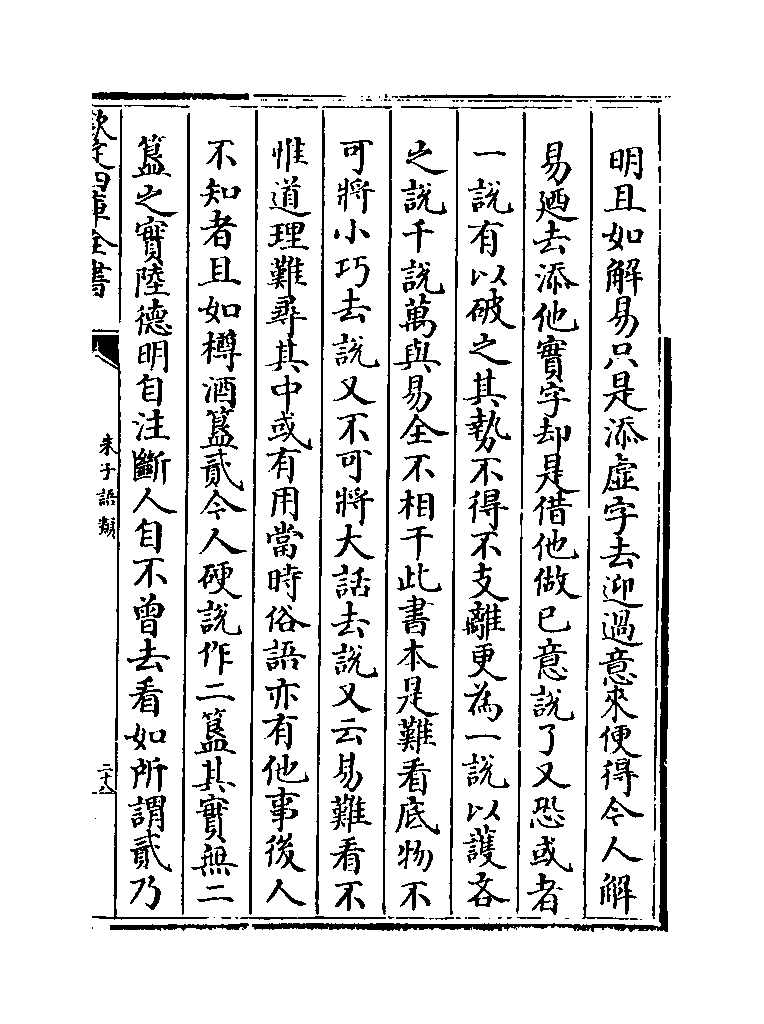 明且如解易只是添虛字去迎過意來便得今人解
易廼去添他實字却是借他做已意說了又恐或者
一說有以破之其勢不得不支離更為一說以護吝
之說千說萬與易全不相干此書本是難看底物不
可將小巧去說又不可將大話去說又云易難看不
惟道理難尋其中或有用當時俗語亦有他事後人
不知者且如樽酒簋貳今人硬說作二簋其實無二
簋之實陸德明自注斷人自不曾去看如所謂貳乃
欽定四庫全書
朱子語類